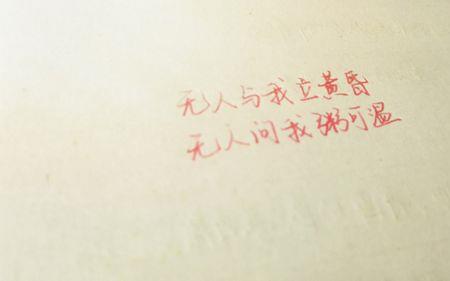 无人与我立黄昏
无人问我粥可温